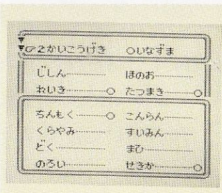 ▼☞2かいこうげき ○いなずま
▼
じしん………… ほのお…………
れいき…………○ たつまき…………○
ちんもく…………○ こんらん…………
くらやみ………… すいみん…………
どく………… まひ…………
のろい………… せきか…………○